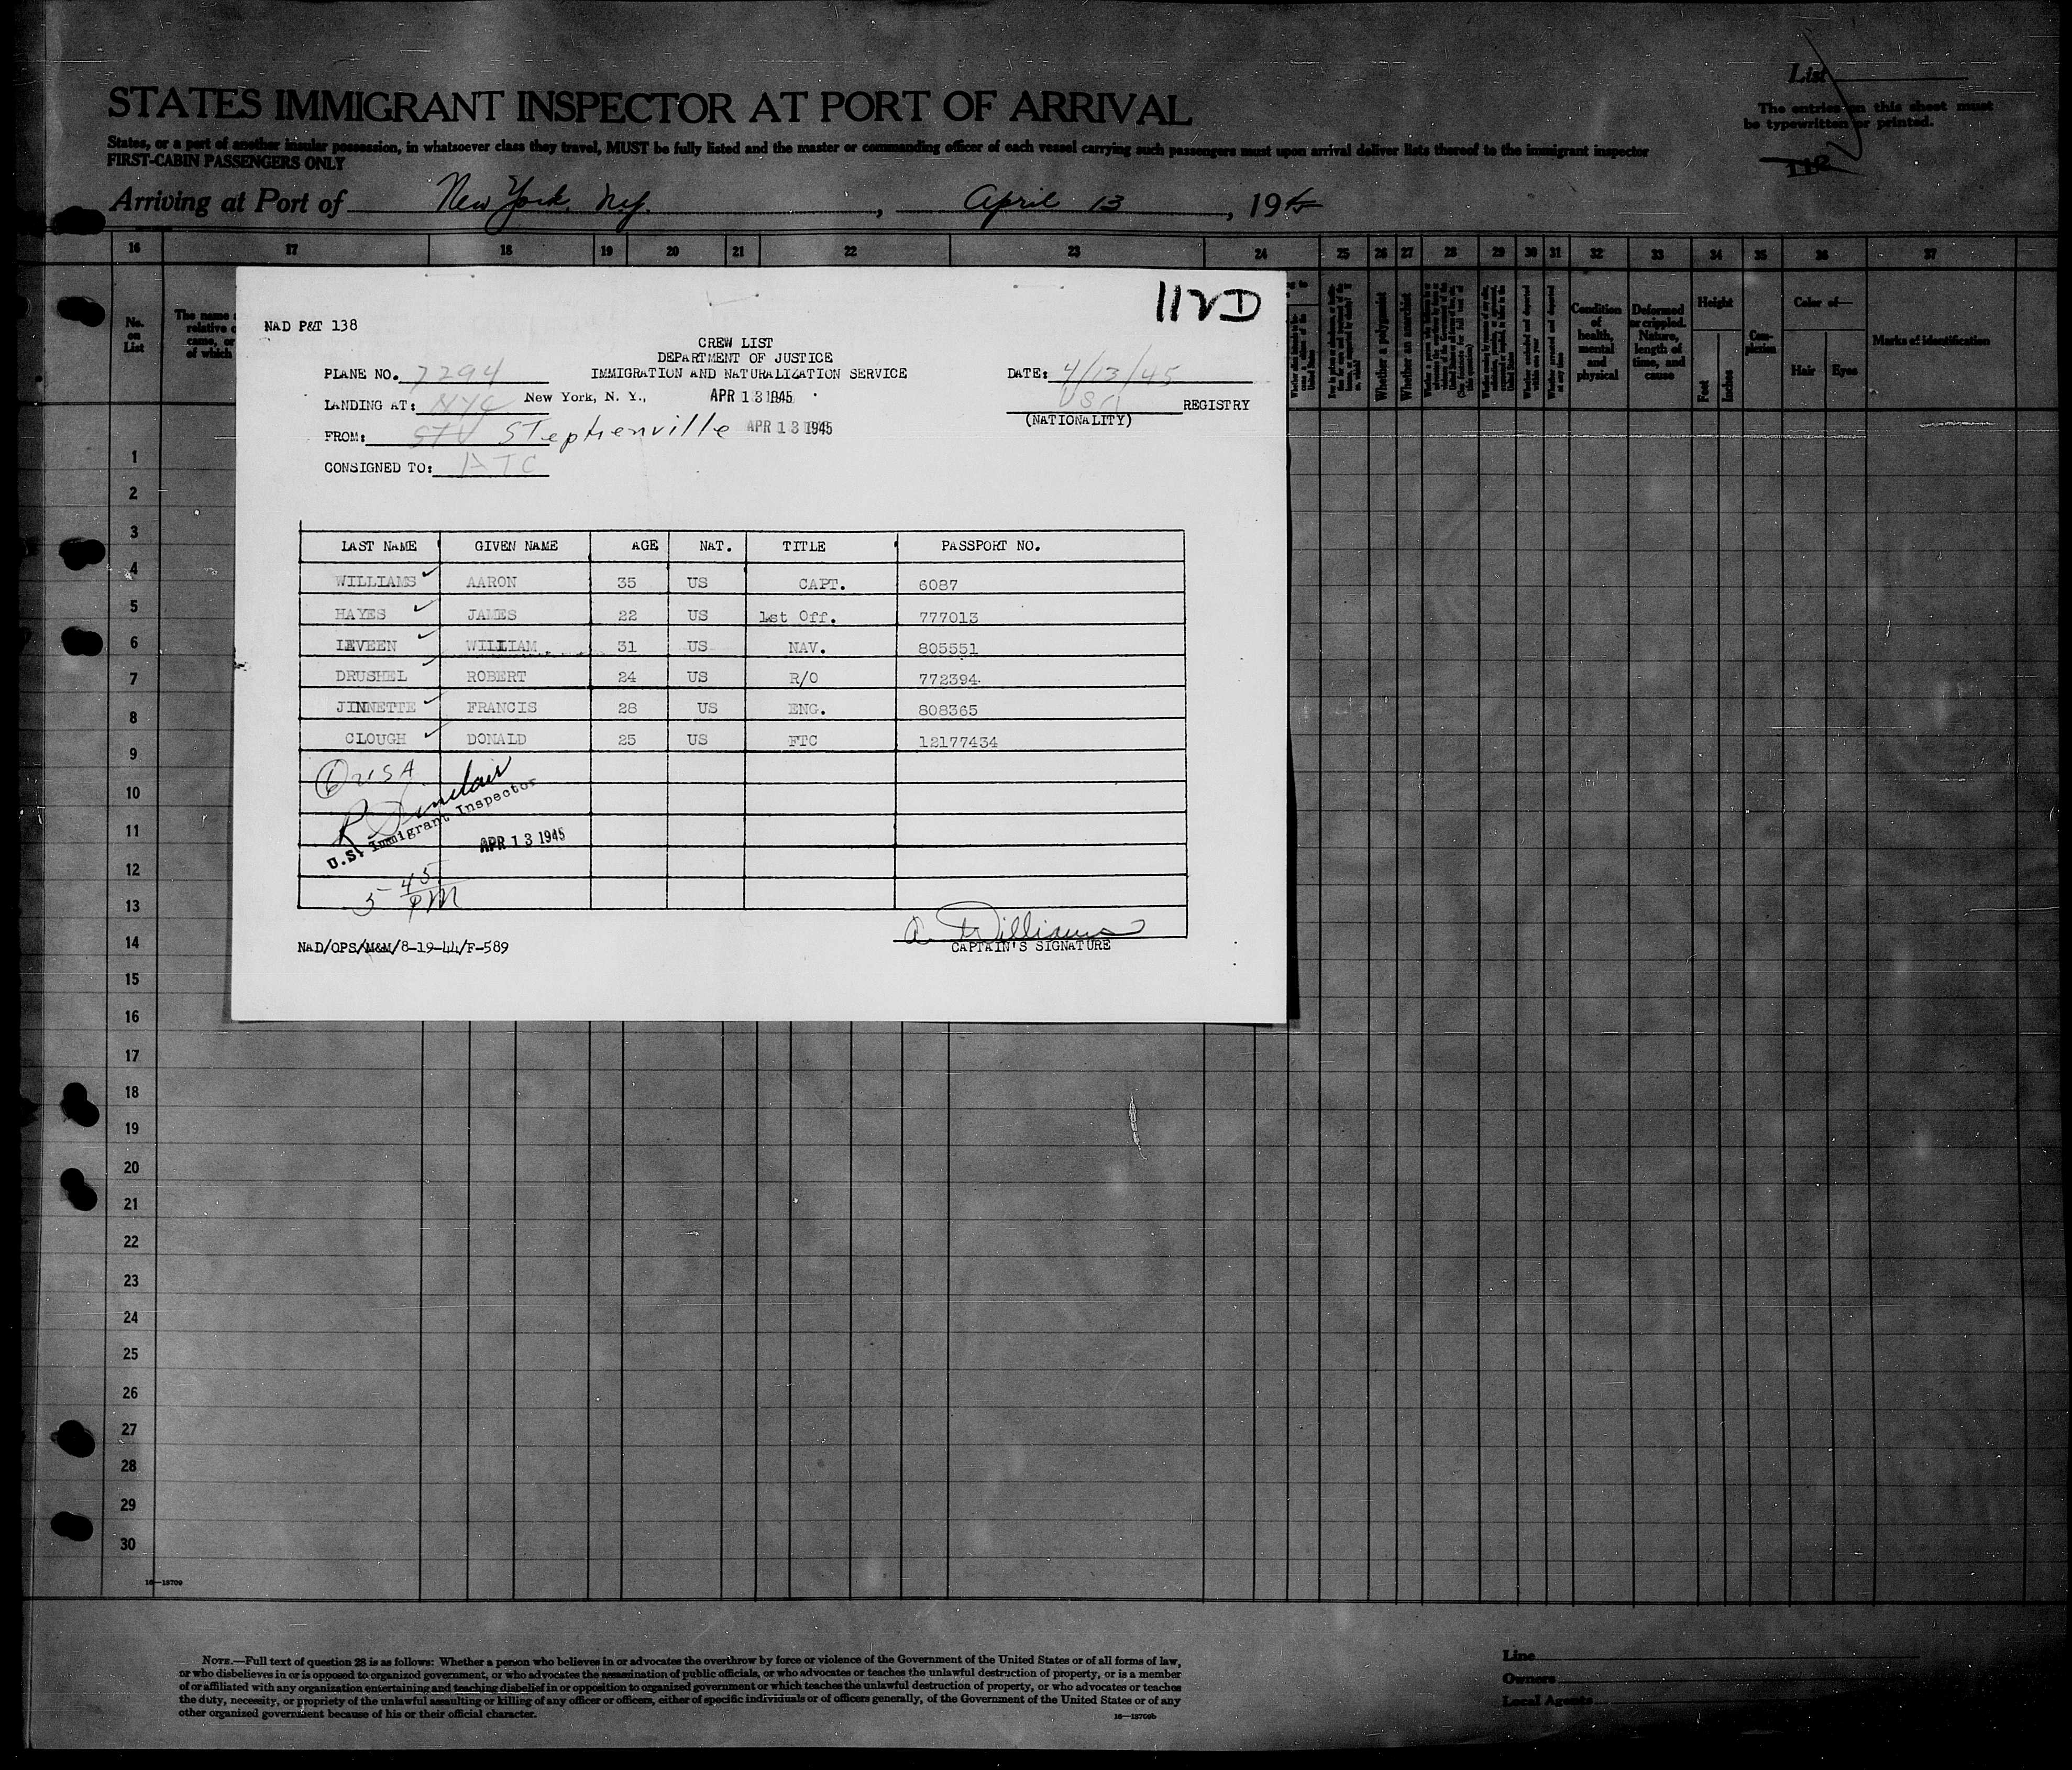 List
STATES IMMIGRANT INSPECTOR AT PORT OF ARRIVAL
The entries on this sheet must
be typewritten or printed.
States, or a part of another insular possession, in whatsoever class they travel, MUST be fully listed and the master or commanding officer of each vessel carrying such passengers must upon arrival deliver lists thereof to the immigrant inspector
FIRST-CABIN PASSENGERS ONLY
Arriving at Port of New York, N.Y., April 13, 1945
16 17 18 19 20 21 22 23 24 25 26 27 28 29 30 31 32 33 34 35 36 37
No. on List
The name
relative
came, or
of which
Whether a polygamist
Whether an anarchist
Condition of health, mental and physical
Deformed or crippled. Nature, length of time, and cause
Height
Feet
Inches
Com-plexion
Color of—
Hair
Eyes
Marks of identification
112D
NAD P&T 138
CREW LIST
DEPARTMENT OF JUSTICE
PLANE NO. 7294 IMMIGRATION AND NATURALIZATION SERVICE DATE: 4/13/45
LANDING AT: NYC New York, N. Y., APR 13 1945 USA REGISTRY
(NATIONALITY)
FROM: STV Stephenville APR 13 1945
CONSIGNED TO: ATC
LAST NAME GIVEN NAME AGE NAT. TITLE PASSPORT NO.
WILLIAMS AARON 35 US CAPT. 6087
HAYES JAMES 22 US 1st Off. 777013
LEVEEN WILLIAM 31 US NAV. 805551
DRUSHEL ROBERT 24 US R/O 772394
JINNETTE FRANCIS 28 US ENG. 808365
CLOUGH DONALD 25 US FTC 12177434
6 USA
R Sinclair
U.S. Immigrant Inspector
APR 13 1945
5 45 PM
A. Williams
NAD/OPS/M&M/8-19-44/F-589 CAPTAIN'S SIGNATURE
1
2
3
4
5
6
7
8
9
10
11
12
13
14
15
16
17
18
19
20
21
22
23
24
25
26
27
28
29
30
16—18709
NOTE.—Full text of question 28 is as follows: Whether a person who believes in or advocates the overthrow by force or violence of the Government of the United States or of all forms of law,
or who disbelieves in or is opposed to organized government, or who advocates the assassination of public officials, or who advocates or teaches the unlawful destruction of property, or is a member
of or affiliated with any organization entertaining and teaching disbelief in or opposition to organized government or which teaches the unlawful destruction of property, or who advocates or teaches
the duty, necessity, or propriety of the unlawful assaulting or killing of any officer or officers, either of specific individuals or of officers generally, of the Government of the United States or of any
other organized government because of his or their official character.
16—18709b
Line
Owners
Local Agents